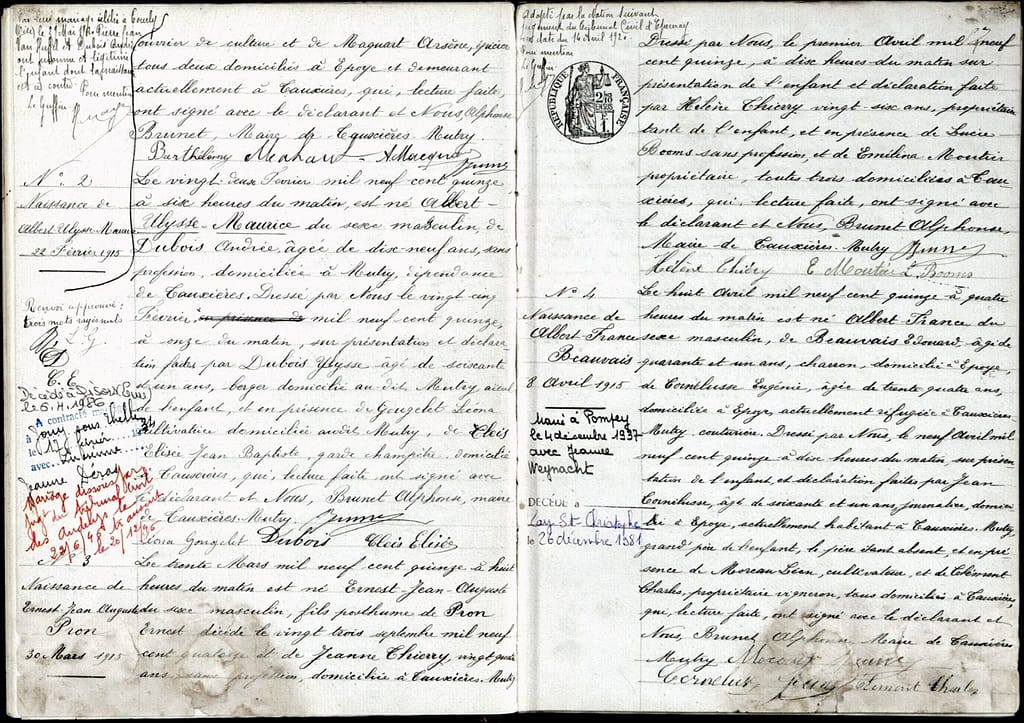 Vu leur mariage célébré à Coucly
(Oise) le 21 Mai 1921. Pierre Jean
Van Hulst et Dubois Andrée
ont reconnu et légitimé
l'enfant dont la naissance
est ci contre. Pour mention
Le Greffier
ouvrier de culture et de Maquart Arsène, épicier
tous deux domiciliés à Epoye et demeurant
actuellement à Cauxières, qui, lecture faite,
ont signé avec le déclarant et Nous, Alphonse
Brunet, Maire de Cauxières-Mutry
Barthélémy
N° 2
Naissance de
Albert Ulysse Maurice
22 Février 1915
Le vingt-deux Février mil neuf cent quinze
à six heures du matin, est né Albert-
Ulysse-Maurice du sexe masculin, de
Dubois Andrée, âgée de dix neuf ans, sans
profession, domiciliée à Mutry, dépendance
de Cauxières. Dressé par Nous le vingt cinq
Février mil neuf cent quinze,
à onze du matin sur présentation et déclara
tion faites par Dubois Ulysse âgé de soixante
et un ans, berger domicilié au dit Mutry, aïeul
de l'enfant, et en présence de Gougelet Léona
cultivatrice domiciliée audit Mutry, de Clois
Elisée Jean Baptiste, garde champêtre domicilié
à Cauxières, qui, lecture faite ont signé avec
le déclarant et Nous, Brunet Alphonse, maire
de Cauxières-Mutry.
Léona Gougelet Dubois Clois Elisée
Renvoi approuvé:
trois mots rayés nuls
L. G.
C. E.
Décédé à
le 6.4.1986
A contracté mariage
à Jouy sous Thelle
le 17 février 1934
avec
Jeanne
Mariage dissous par
jugt du tribunal civil
des Andelys le
22/6/45
le 20/12/46
N° 3
Naissance de
Ernest Jean Auguste
Pron
30 Mars 1915
Le trente Mars mil neuf cent quinze à huit
heures du matin est né Ernest Jean-Auguste
du sexe masculin, fils posthume de Pron
Ernest décédé le vingt trois septembre mil neuf
cent quatorze et de Jeanne Thierry, vingt quatre
ans sans profession, domiciliée à Cauxières-Mutry
Adopté par la Nation suivant
jugement du Tribunal Civil d'Epernay
en date du 16 Avril 1920.
Pour mention
Le Greffier
RÉPUBLIQUE FRANÇAISE
Dressé par Nous, le premier Avril mil neuf
cent quinze, à dix heures du matin sur
présentation de l'enfant et déclaration faite
par Hélène Thierry vingt six ans, propriétaire
tante de l'enfant, et en présence de Lucie
Booms sans profession, et de Emélina Moutier
propriétaire, toutes trois domiciliées à Cau
xières, qui, lecture faite, ont signé avec
le déclarant et Nous, Brunet Alphonse,
Maire de Cauxières-Mutry Brunet
Hélène Thiéry E Moutier L. Booms
N° 4
Naissance de
Albert France
Beauvais
8 Avril 1915
Le huit Avril mil neuf cent quinze à quatre
heures du matin est né Albert France du
sexe masculin, de Beauvais Edouard, âgé de
quarante et un ans, charron, domicilié à Epoye,
de Cornélusse Eugénie, âgée de trente quatre ans,
domiciliée à Epoye, actuellement réfugiée à Cauxières-
Mutry couturière. Dressé par Nous, le neuf Avril mil
neuf cent quinze à dix heures du matin, sur présen
tation de l'enfant et déclaration faites par Jean
Cornélusse, âgé de soixante et un ans, journalier, domici
lié à Epoye, actuellement habitant à Cauxières-Mutry
grand' père de l'enfant, le père étant absent, et en pré
sence de Moreau Léon, cultivateur, et de Clément
Charles, propriétaire vigneron, tous domiciliés à Cauxières,
qui, lecture faite, ont signé avec le déclarant et
Nous, Brunet Alphonse Maire de Cauxières
Mutry
Clément Charles
Marié à Pompey
le 4 décembre 1937
avec Jeanne
Weynacht
DÉCÉDÉ à
Lay St Christophe
le 26 décembre 1981